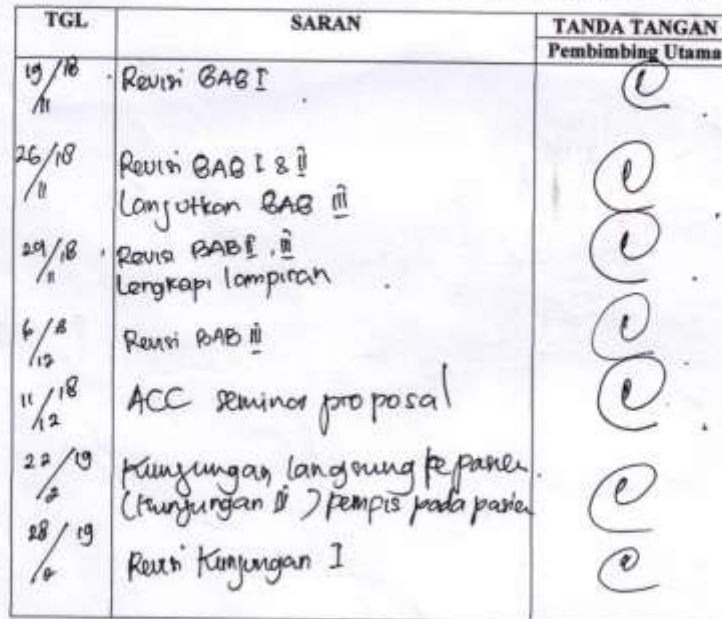 TGL SARAN TANDA TANGAN
Pembimbing Utama
19/18 Revisi BAB I
11
26/18 Revisi BAB I & II
11 Lanjutkan BAB III
29/18 Revisi BAB II, III
11 Lengkapi lampiran
6/18 Revisi BAB III
12
11/18 ACC seminar proposal
12
22/19 Kunjungan langsung ke pasien
2 (Kunjungan III) pempis pada pasien
28/19 Revisi Kunjungan I